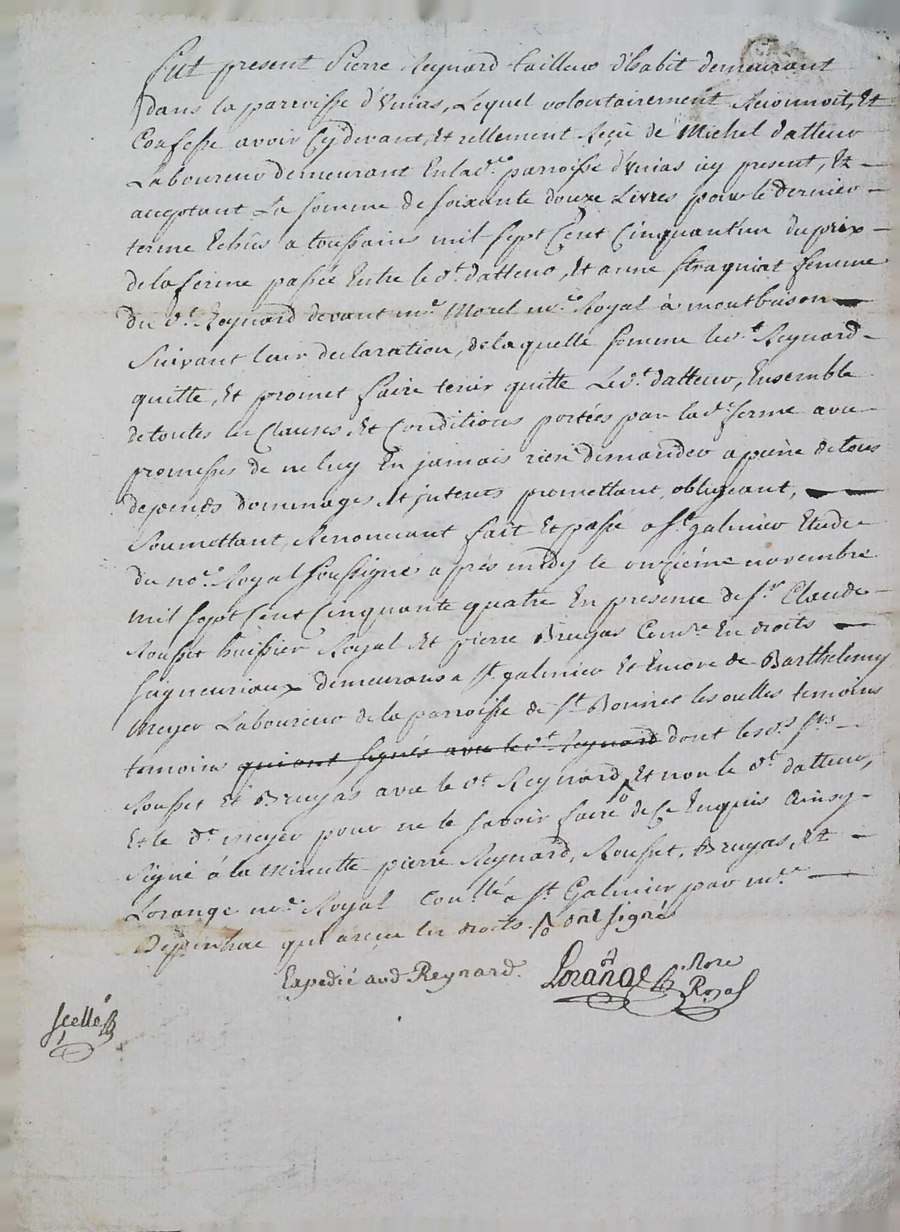 Fut present Pierre Reynard tailleur d'habit demeurant
dans la parroisse d'Unias, Lequel volontairement Reconnoit, Et
Confesse avoir Cydevant, Et rellement Reçu de Michel datteur
Laboureur demeurant En lad.e parroisse d'Unias icy present, Et
acceptant La somme de soixante douze Livres pour le dernier
terme Echus a toussains mil sept Cent Cinquant'un du prix
de la ferme passée Entre le d.t datteur, Et anne Straquiat femme
du d.t Reynard devant m.e Morel no.re Royal à montbrison
Suivant leur declaration, de laquelle femme le d.t Reynard
quitte, Et promet faire tenir quitte Le d.t datteur, Ensemble
de toutes les Clauses Et Conditions portées par la d.e ferme avec
promesses de ne luy En jamais rien demander a peine de tous
depends dommages Et interets promettant, obligeant,
Soumettant, Renonçant fait Et passé a S.t galmier Etude
du no.re Royal soussigné après midy le onzième novembre
mil sept Cent Cinquante quatre En presence de s.r Claude
Rousset huissier Royal Et pierre Bruyas Com.re En droits
seigneuriaux demeurans a S.t galmier Et Encore de Barthelemy
Meyer Laboureur de la parroisse de S.t Bonnet les oulles temoins
temoins qui ont signés avec le d.t Reynard dont les d.s s.rs
Rousset Et Bruyas avec le d.t Reynard, Et non le d.t datteur,
Et le d.t meyer pour ne le savoir faire de Ce Enquis Ainsy
Signé à la Minutte pierre Reynard, Rousset, Bruyas, Et
Lorange no.re Royal Conllé a S.t Galmier par m.e
qui a reçu les droits. ont signés
Expedié aud Reynard.
Lorange No.re
Royal
scellé